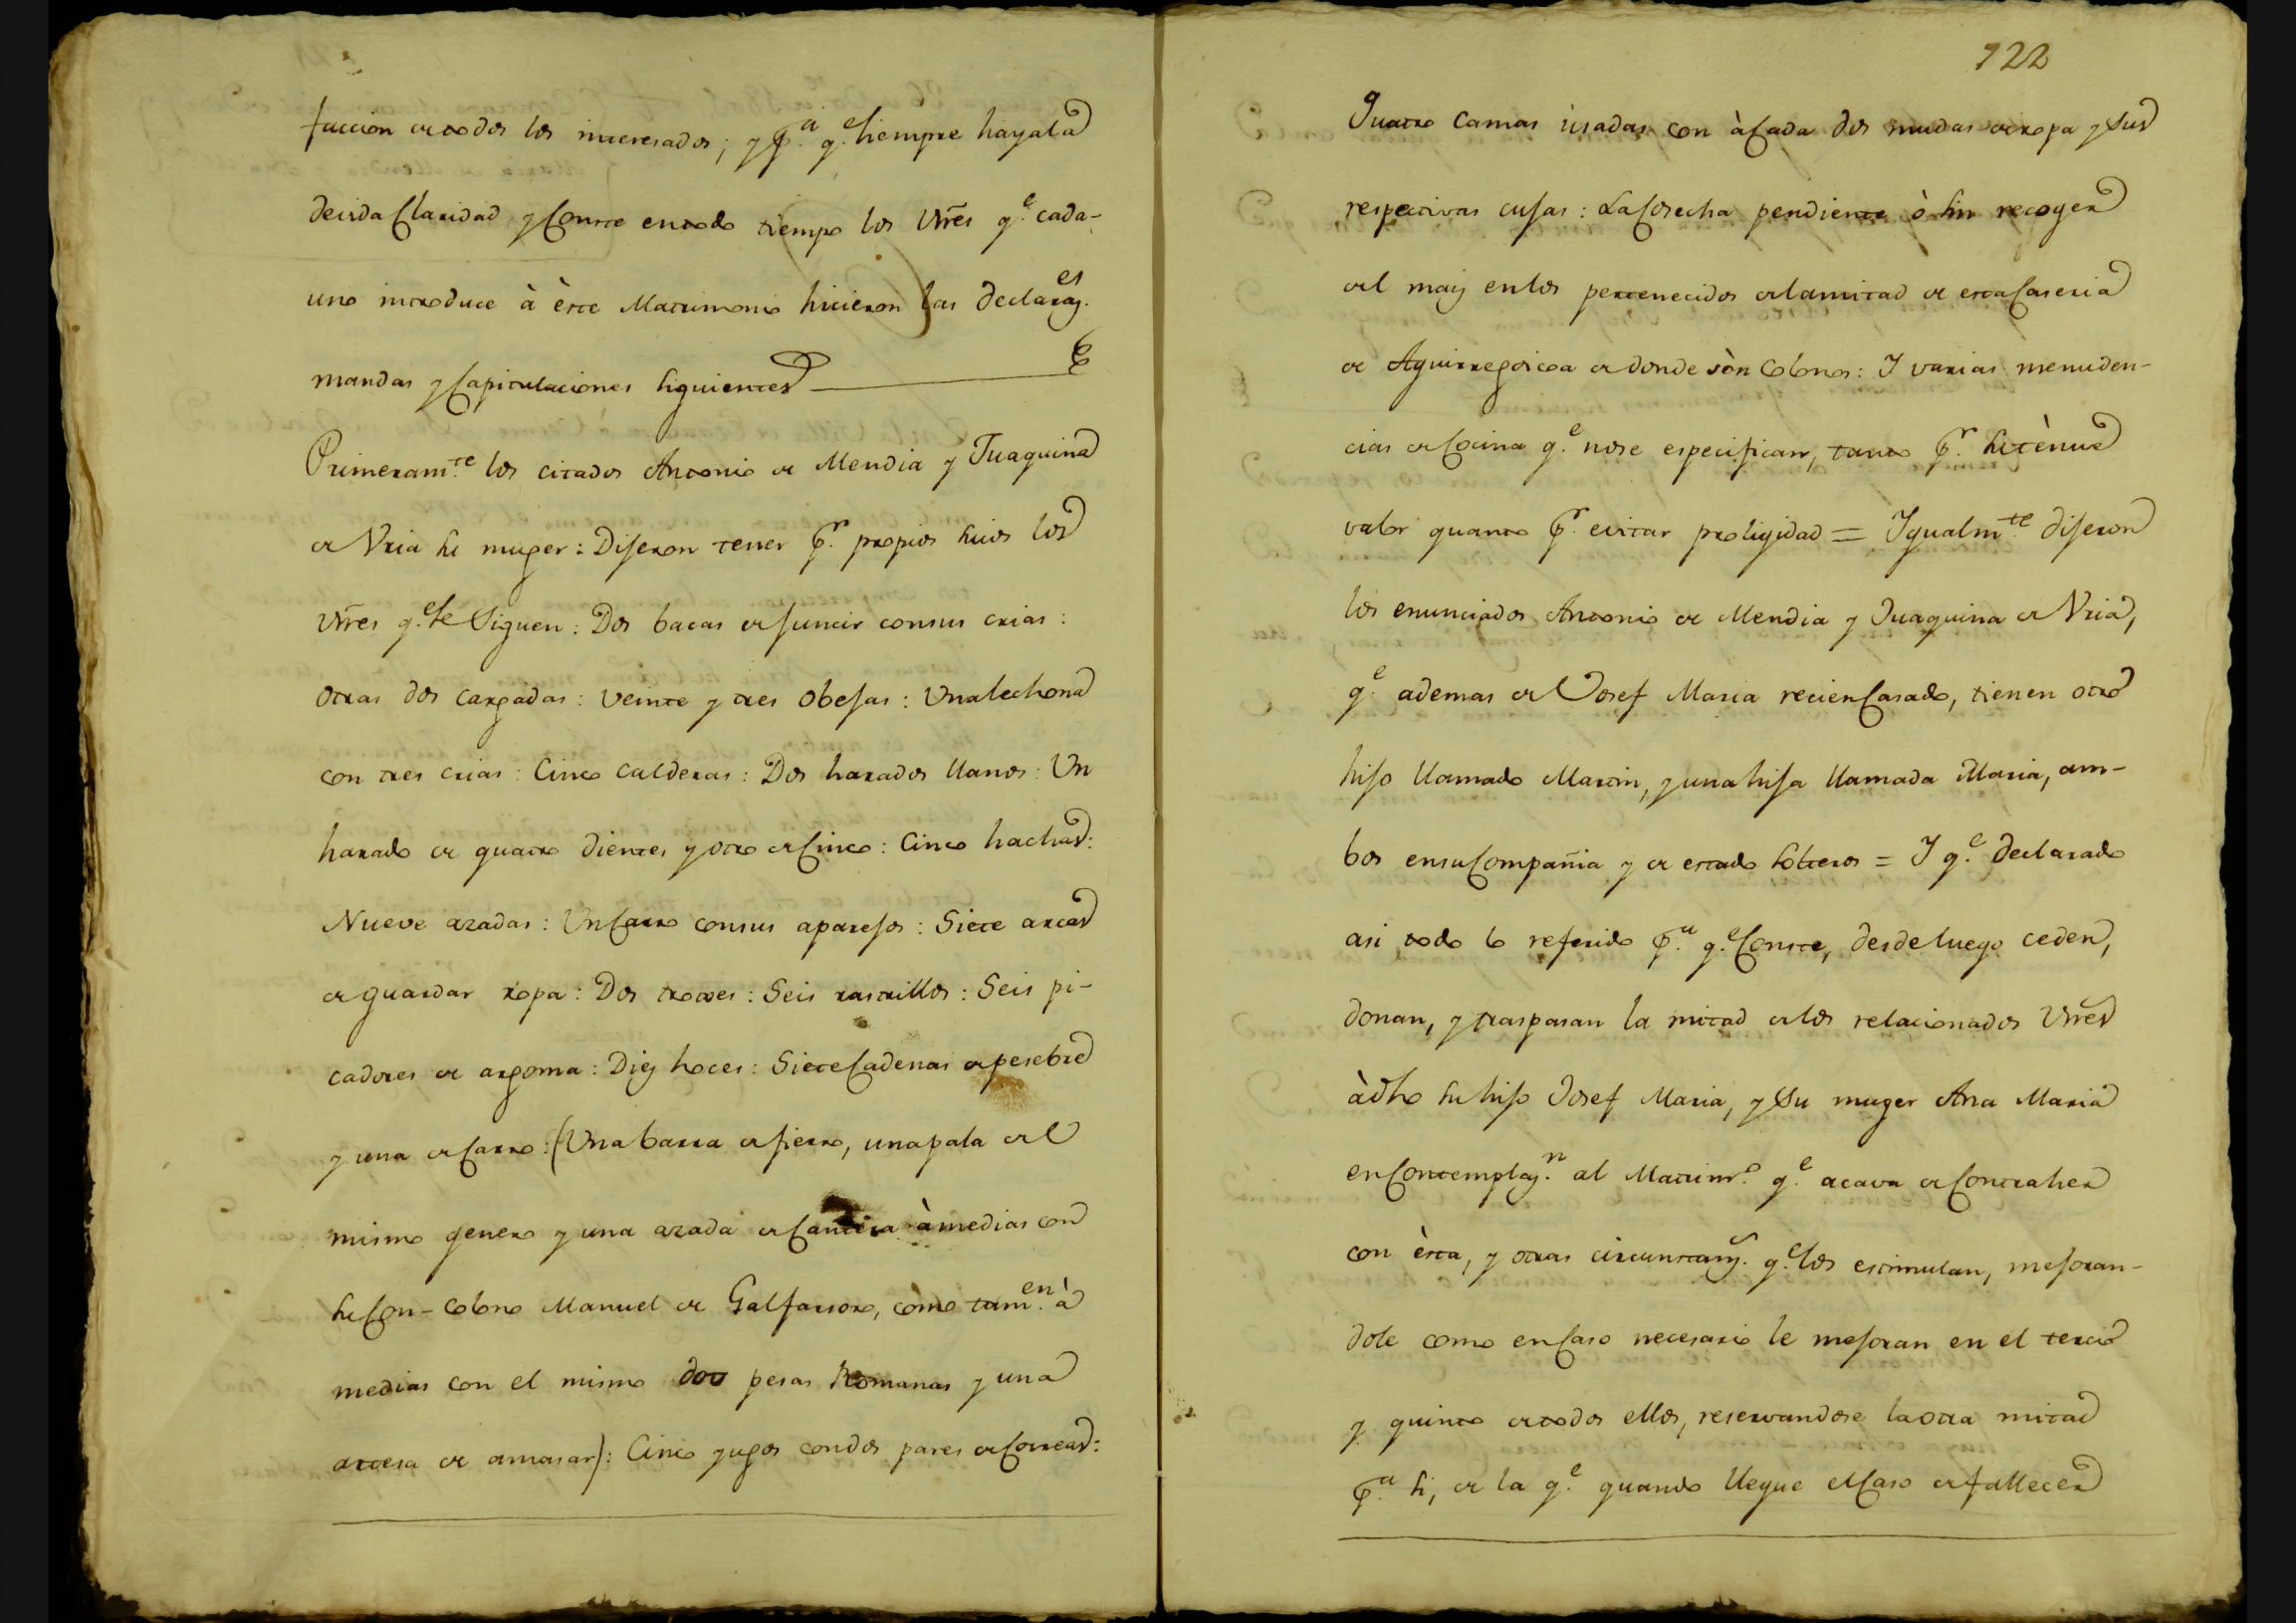 faccion de todos los interesados; y p.ª q.e siempre haya la
devida Claridad y Conste en todo tiempo los Vñes q.e cada-
uno introduce à èste Matrimonio hicieron las declaraz.es
mandas y Capitulaciones siguientes
Primeram.te los citados Antonio de Mendia y Juaquina
de Vria su muger: Dijeron tener p.r propios suios los
vñes q.e se Siguen: Dos bacas de juncir con sus crias:
otras dos cargadas: veinte y tres obejas: Una lechona
con tres crias: Cinco calderas: Dos harados llanos: Un
harado de quatro dientes y otro de Cinco: Cinco hachas:
Nueve azadas: Un Carro con sus aparejos: Siete arcas
de guardar ropa: Dos troxes: Seis rastrillos: Seis pi-
cadores de argoma: Diez hoces: Siete Cadenas de pesebre
y una de Carro: (Una barra de fierro, una pala del
mismo genero y una azada de Cantera à medias con
su Con-colono Manuel de Galfarsoro, còmo tam.en à
medias con el mismo dos pesas Romanas y una
artesa de amasar): Cinco yugos con dos pares de Correas:
122
Quatro camas usadas con à Cada dos mudas de ropa y sus
respectivas cujas: La Cosecha pendiente ò sin recoger
del maiz en los pertenecidos de la mitad de esta Caseria
de Aguirregoicoa de donde sòn Colonos: I varias menuden-
cias de Cocina q.e no se especifican, tanto p.r su tènue
valor quanto p.r evitar proligidad = Igualm.te dijeron
los enunciados Antonio de Mendia y Juaquina de Vria,
q.e ademas de Josef Maria recien Casado, tienen otro
hijo llamado Martin, y una hija llamada Maria, am-
bos en su Compañia y de estado solteros = I q.e declarado
asi todo lo referido p.ª q.e Conste, desde luego ceden,
donan, y traspasan la mitad de los relacionados Vñes
à dho su hijo Josef Maria, y su muger Ana Maria
en Contemplaz.n al Matrim.o q.e acava de Contraher
con èsta, y otras circunstanz.s q.e los estimulan, mejoran-
dole como en Caso necesario le mejoran en el tercio
y quinto de todos ellos, reservandose la otra mitad
p.ª si, de la q.e quando llegue el Caso de fallecer